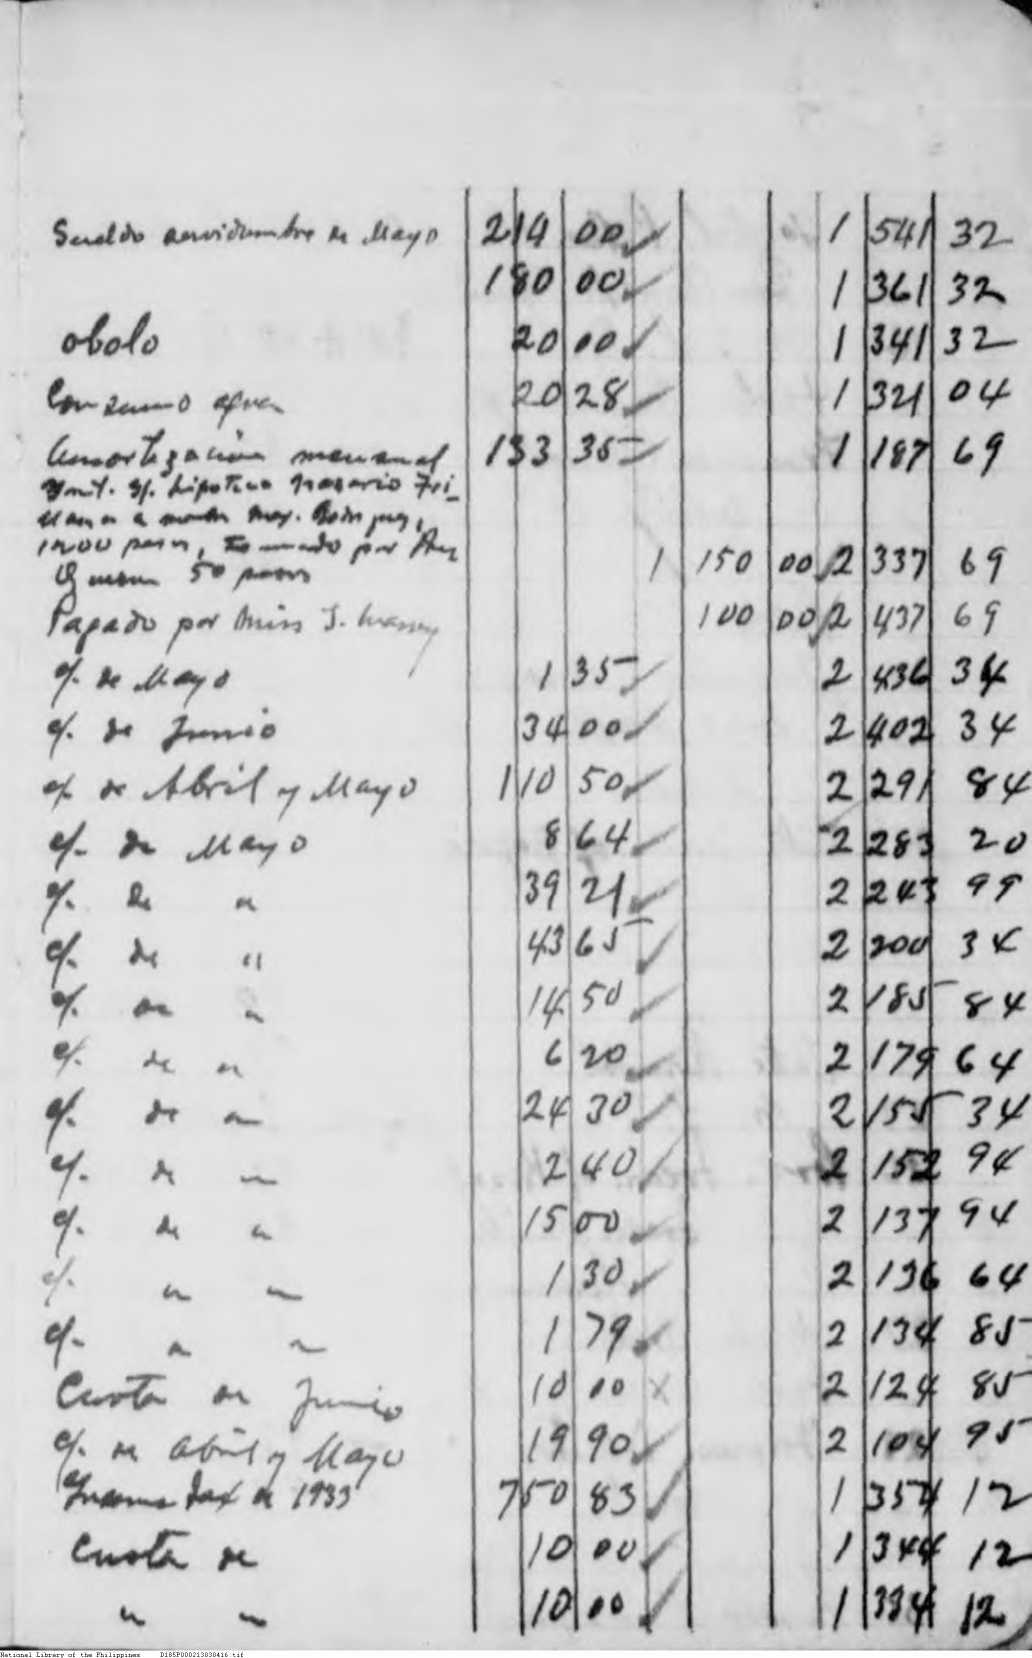 Sueldo servidumbre de Mayo 214 00 1 541 32
180 00 1 361 32
obolo 20 00 1 341 32
Consumo agua 20 28 1 321 04
Amortización mensual 133 35 1 187 69
hipoteca Nazario Tri-
llana a
1200 pesos, por
50 pesos 1 150 00 2 337 69
Pagado por Miss J. 100 00 2 437 69
c/. de Mayo 1 35 2 436 34
c/. de Junio 34 00 2 402 34
c/. de Abril y Mayo 110 50 2 291 84
c/. de Mayo 8 64 2 283 20
c/. de " 39 21 2 243 99
c/. de " 43 65 2 200 34
c/. de " 14 50 2 185 84
c/. de " 6 20 2 179 64
c/. de " 24 30 2 155 34
c/. de " 2 40 2 152 94
c/. de " 15 00 2 137 94
c/. " " 1 30 2 136 64
c/. " " 1 79 2 134 85
Cuota de Junio 10 00 x 2 124 85
c/. de Abril y Mayo 19 90 2 104 95
Income Tax de 1933 750 83 1 354 12
Cuota de 10 00 1 344 12
" " 10 00 1 334 12
National Library of the Philippines D185P000213038416.tif